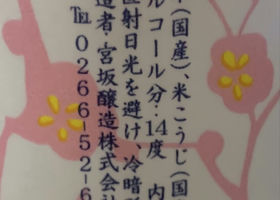 (国産)、米こうじ(国
ルコール分・14度 内
直射日光を避け、冷暗所
造者・宮坂醸造株式会社
℡0266-52-6